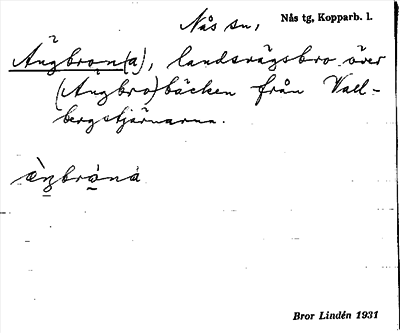 Nås sn,
Nås tg, Kopparb. l.
Ängbron(a), landsvägsbro över
(Ängbro)bäcken från Vall-
bergstjärnarna.
æ̀ŋbrǫ́ná
Bror Lindén 1931